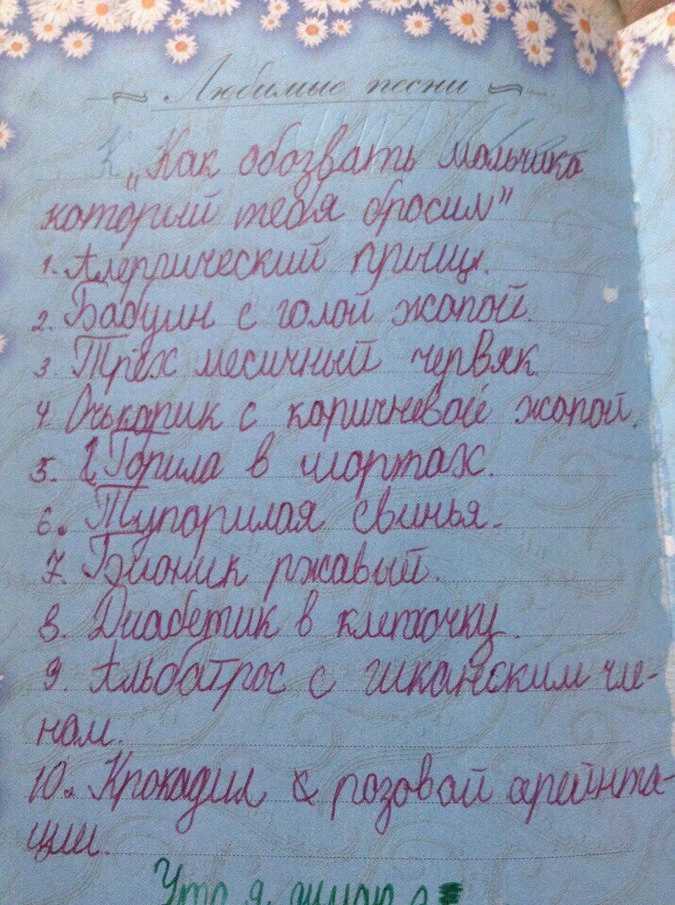 Любимые песни
„Как обозвать мальчика
который тебя бросил"
1. Алергический прыщ.
2. Бабуин с голой жопой.
3 Трёх месичный червяк
4. Очькарик с каричневой жопой.
5. Горила в шортах.
6. Тупорилая свинья.
7. Бионик ржавый.
8. Диабетик в клеточку.
9. Альбатрос с гиканским чле-
ном.
10. Крокадил с розовой арейнта-
ции.
Что я